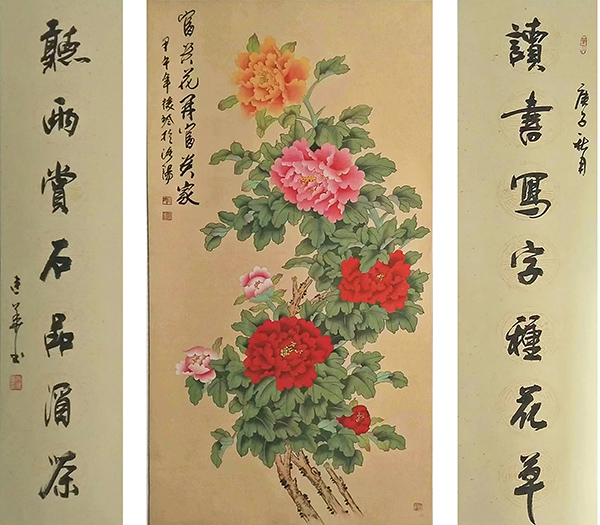 庚子秋月
讀書寫字種花草
富貴花開富貴家
甲午年 於洛陽
聽雨賞石品湄茶